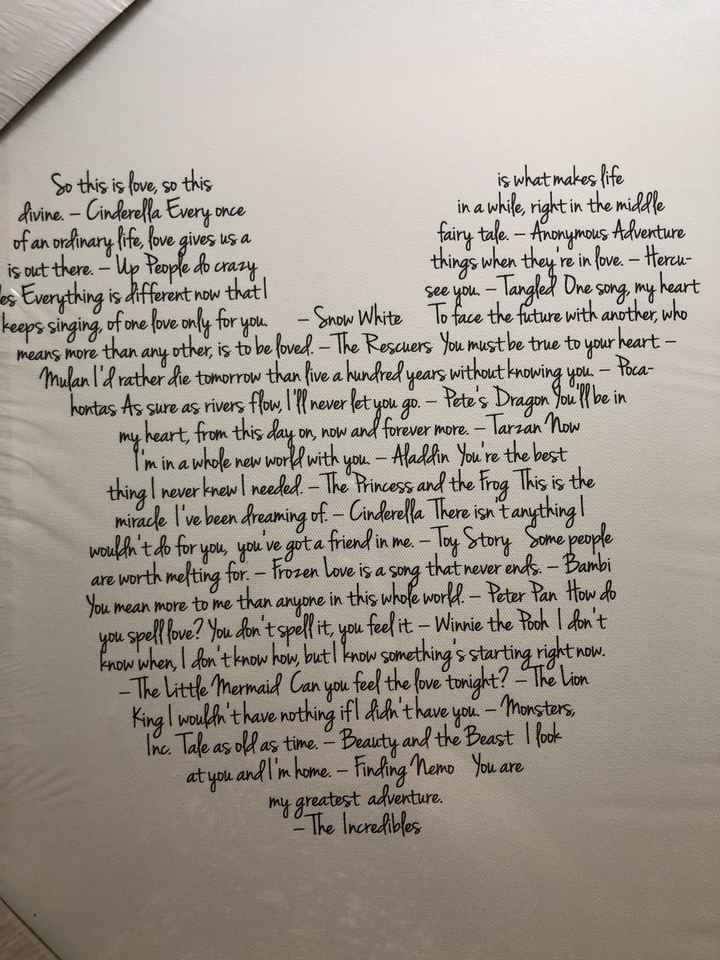 So this is love, so this is what makes life
divine. – Cinderella Every once in a while, right in the middle
of an ordinary life, love gives us a fairy tale. – Anonymous Adventure
is out there. – Up People do crazy things when they're in love. – Hercu-
les Everything is different now that I see you. – Tangled One song, my heart
keeps singing, of one love only for you. – Snow White To face the future with another, who
means more than any other, is to be loved. – The Rescuers You must be true to your heart –
Mulan I'd rather die tomorrow than live a hundred years without knowing you. – Poca-
hontas As sure as rivers flow, I'll never let you go. – Pete's Dragon You'll be in
my heart, from this day on, now and forever more. – Tarzan Now
I'm in a whole new world with you. – Aladdin You're the best
thing I never knew I needed. – The Princess and the Frog This is the
miracle I've been dreaming of. – Cinderella There isn't anything I
wouldn't do for you, you've got a friend in me. – Toy Story Some people
are worth melting for. – Frozen Love is a song that never ends. – Bambi
You mean more to me than anyone in this whole world. – Peter Pan How do
you spell love? You don't spell it, you feel it – Winnie the Pooh I don't
know when, I don't know how, but I know something's starting right now.
– The Little Mermaid Can you feel the love tonight? – The Lion
King I wouldn't have nothing if I didn't have you. – Monsters,
Inc. Tale as old as time. – Beauty and the Beast I look
at you and I'm home. – Finding Nemo You are
my greatest adventure.
– The Incredibles